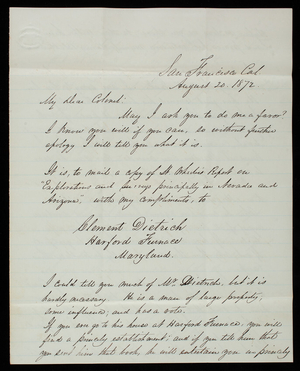 San Francisco Cal
August 20. 1872
My dear Colonel.
May I ask you to do me a favor?
I know you will if you can, so without further
apology I will tell you what it is.
It is, to mail a copy of Lt Wheelers Report on
"Explorations and surveys principally in Nevada and
Arizona, with my compliments, to
Clement Dietrich
Harford Furnace
Maryland.
I could tell you much of Mr. Dietrich, but it is
hardly necessary. He is a man of large property,
some influence, and has a vote.
If you ever go to his house at Harford Furnace, you will
find a princely establishment; and if you tell him that
you send him that book he will entertain you as princely